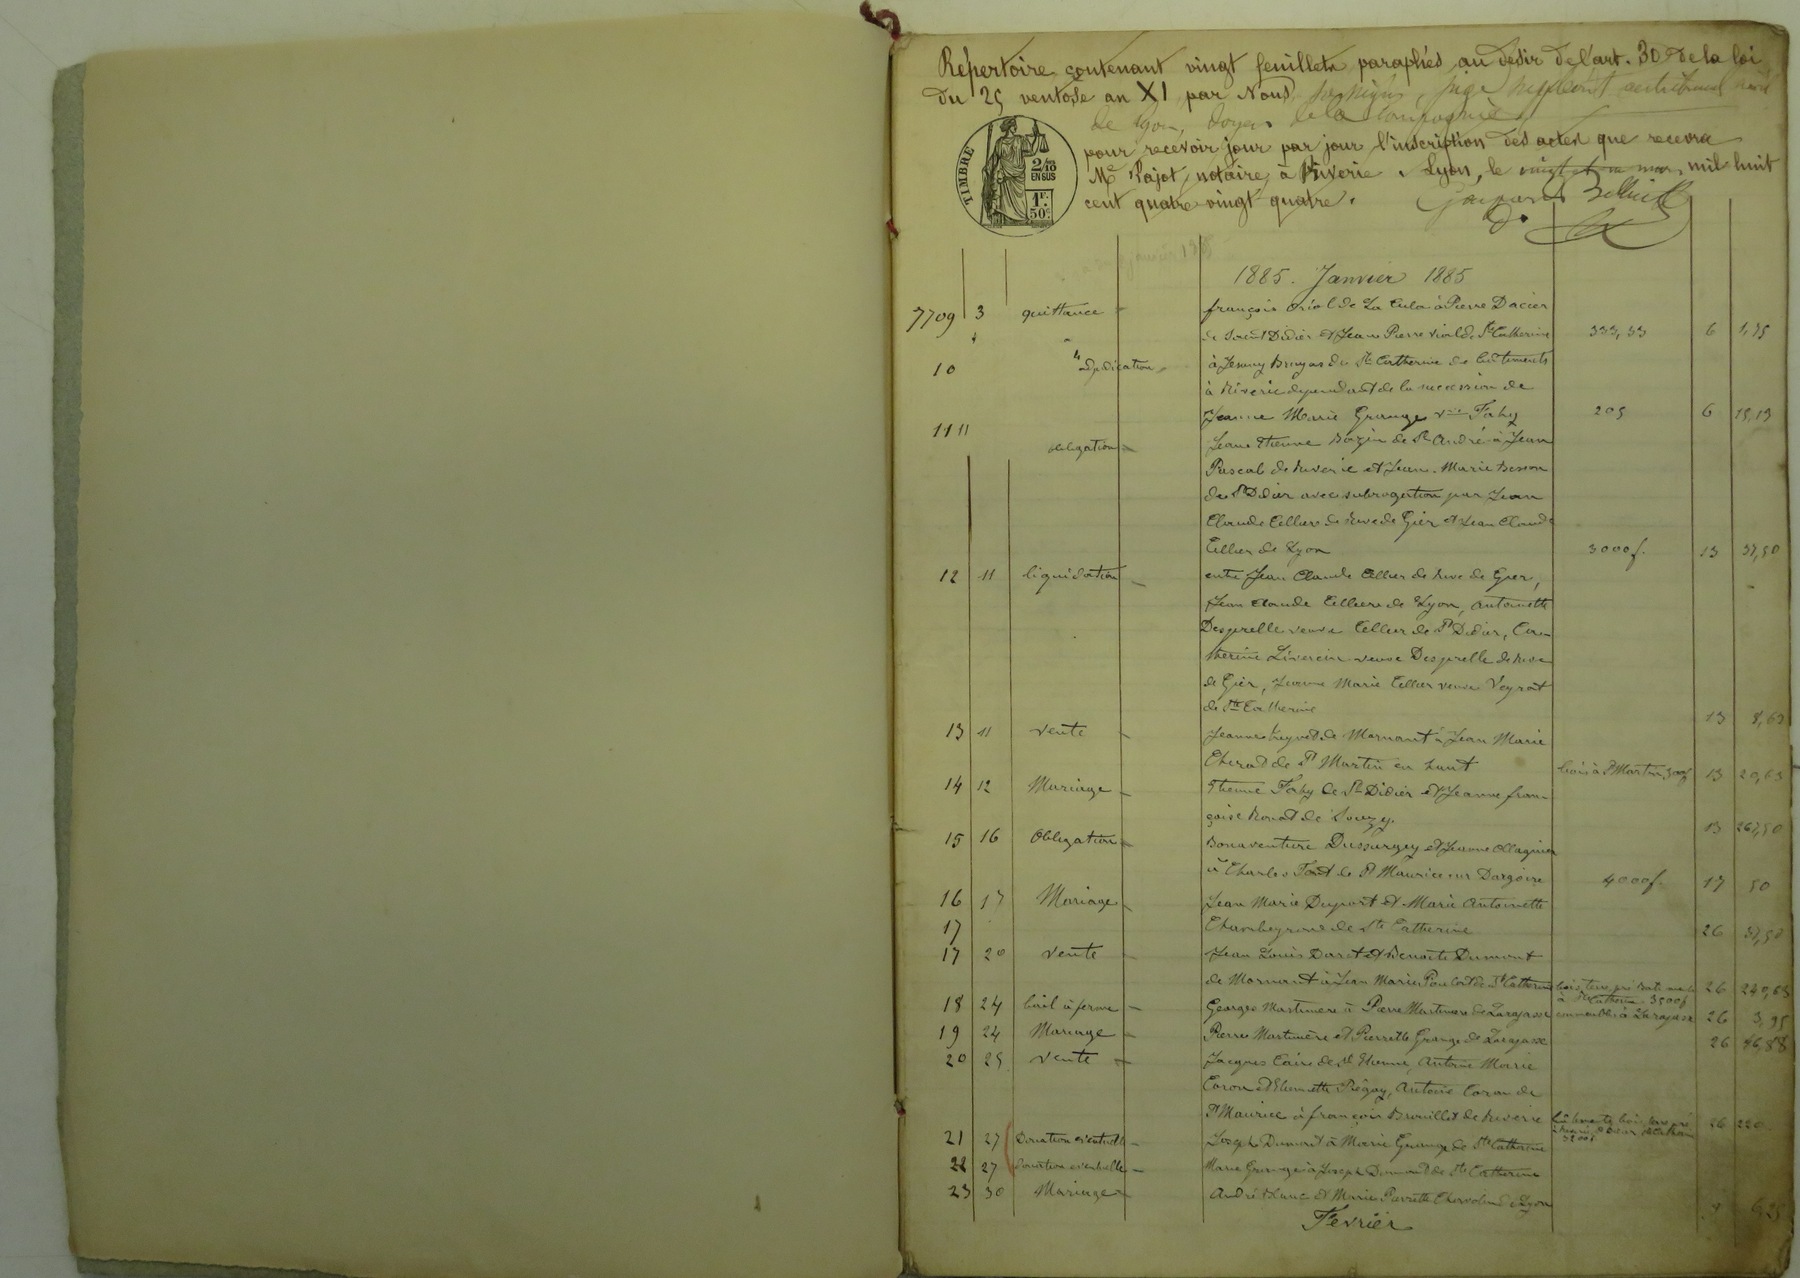 Répertoire contenant vingt feuillets paraphés au désir de l'art. 30 de la loi
du 25 ventose an XI par Nous
de Lyon, doyen de la Compagnie
pour recevoir jour par jour l'inscription des actes que recevra
Me Pajot, notaire, à Riverie. Lyon, le mil huit
cent quatre-vingt quatre.
TIMBRE
2/10
EN SUS
1F.
50c
1885. Janvier 1885
7709 3 quittance françois Oriol de La Cula à Pierre Dacier
de Saint Didier et Jean Pierre Vial de Ste Catherine 333,33 6 1,75
10 adjudication à Jenny Bruyas de Ste Catherine de batiments
à Riverie dependant de la succession de
Jeanne Marie Grange Vve Fahy 205 6 15,13
11 11 obligation Jean Etienne Bazin de St André à Jean
Pascal de Riverie et Jean-Marie Besson
de St Didier avec subrogation par Jean
Claude Cellier de Rive de Gier et Jean Claude
Cellier de Lyon 3000f. 13 37,50
12 11 liquidation entre Jean Claude Cellier de Rive de Gier,
Jean Claude Cellier de Lyon, Antoinette
Desgrelle veuve Cellier de St Didier, Ca-
therine veuve Desgrelle de Rive
de Gier, Jeanne Marie Cellier veuve Veyrat
de Ste Catherine 13 8,63
13 11 vente Jeanne de Mornant à Jean Marie
de St Martin en haut bois à St Martin 300f 13 20,63
14 12 Mariage Etienne Fahy de St Didier et Jeanne fran-
çoise de Souzy. 13 267,50
15 16 Obligation Bonaventure Dussurgey et Jeanne Ollagnier
à Charles Font de St Maurice sur Dargoire 4000f. 17 50
16 17 Mariage Jean Marie Dupont et Marie Antoinette
17 de Ste Catherine 26 37,50
17 20 vente Jean Louis Daret et Benoite Dumont
de Mornant à Jean Marie de Ste Catherine 26 240,63
à Ste Catherine 3500f
18 24 bail à ferme Georges Martinière à Pierre Martinière de Larajasse immeubles à Larajasse 26 3,95
19 24 Mariage Pierre Martinière et Pierrette Grange de Larajasse 26 46,88
20 25 vente Jacques de St Etienne, Antoine Marie
Caron et Antoine Caron de
St Maurice à françois Brouillet de Riverie 26 220
21 27 Donation éventuelle Joseph Dumont à Marie Grange de Ste Catherine
22 27 donation éventuelle Marie Grange à Joseph Dumont de Ste Catherine
23 30 Mariage André Blanc et Marie Pierrette de Lyon 6,25
Fevrier